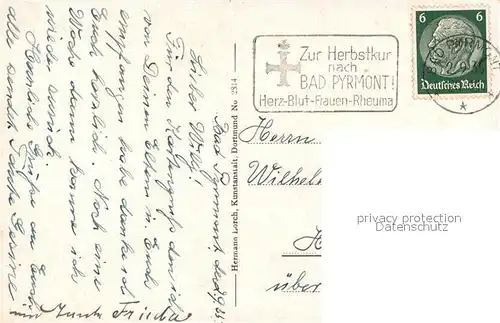 Zur Herbstkur
nach
BAD PYRMONT!
Herz-Blut-Frauen-Rheuma
6 6
Deutsches Reich
Herrn
Wilhel
über
privacy protection
Datenschutz
Hermann Lorch, Kunstanstalt, Dortmund No 2314
Bad Pyrmont, den
Lieber Willi!
Für den Kartengruß den ich
von Deinen Eltern u. Euch
empfangen habe danke ich
Euch herzlich. Noch eine
Woche dann komme ich
wieder zurück.
Herzliche Grüße an Euch
alle sendet
Tante Frieda